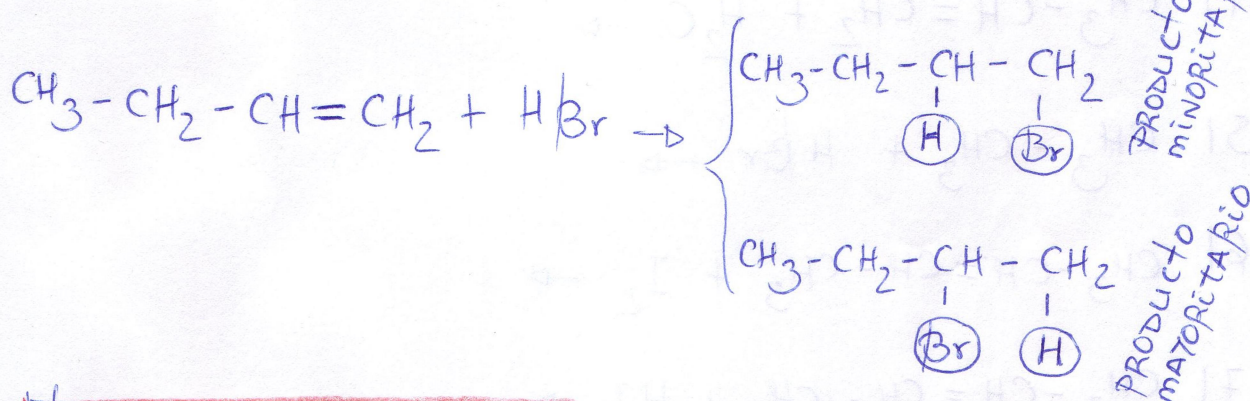 CH3-CH2-CH=CH2 + HBr →
CH3-CH2-CH-CH2
H Br
PRODUCTO
CH3-CH2-CH-CH2
Br H
PRODUCTO
MAYORITARIO